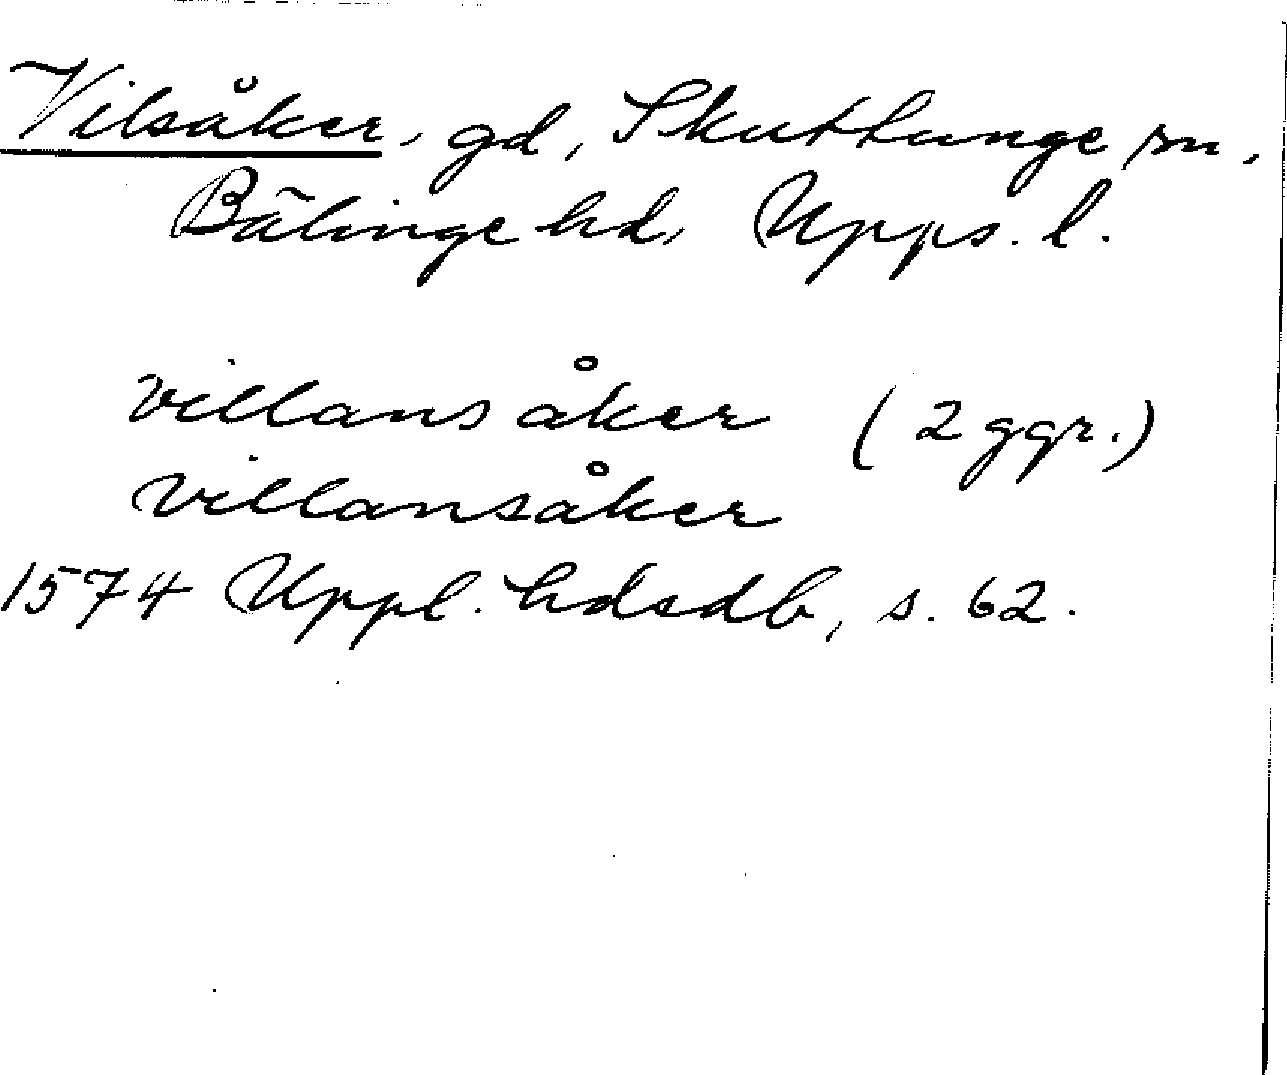 Vilsåker, gd, Skuttunge sn,
Bälinge hd, Upps. l.
villans åker (2 ggr.)
villansåker
1574 Uppl. hdsdb, s. 62.